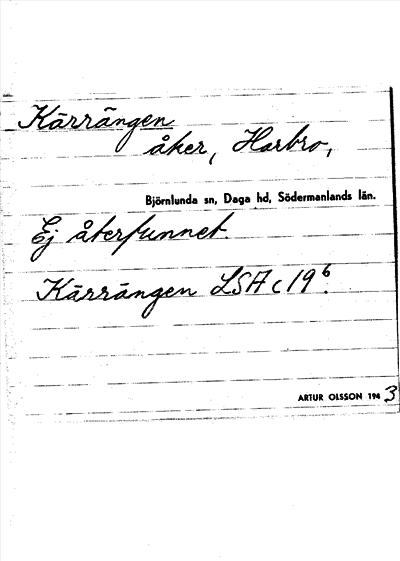 Kärrängen
åker, Harbro,
Björnlunda sn, Daga hd, Södermanlands län.
Ej återfunnet.
Kärrängen LSA c 19⁶.
ARTUR OLSSON 1943